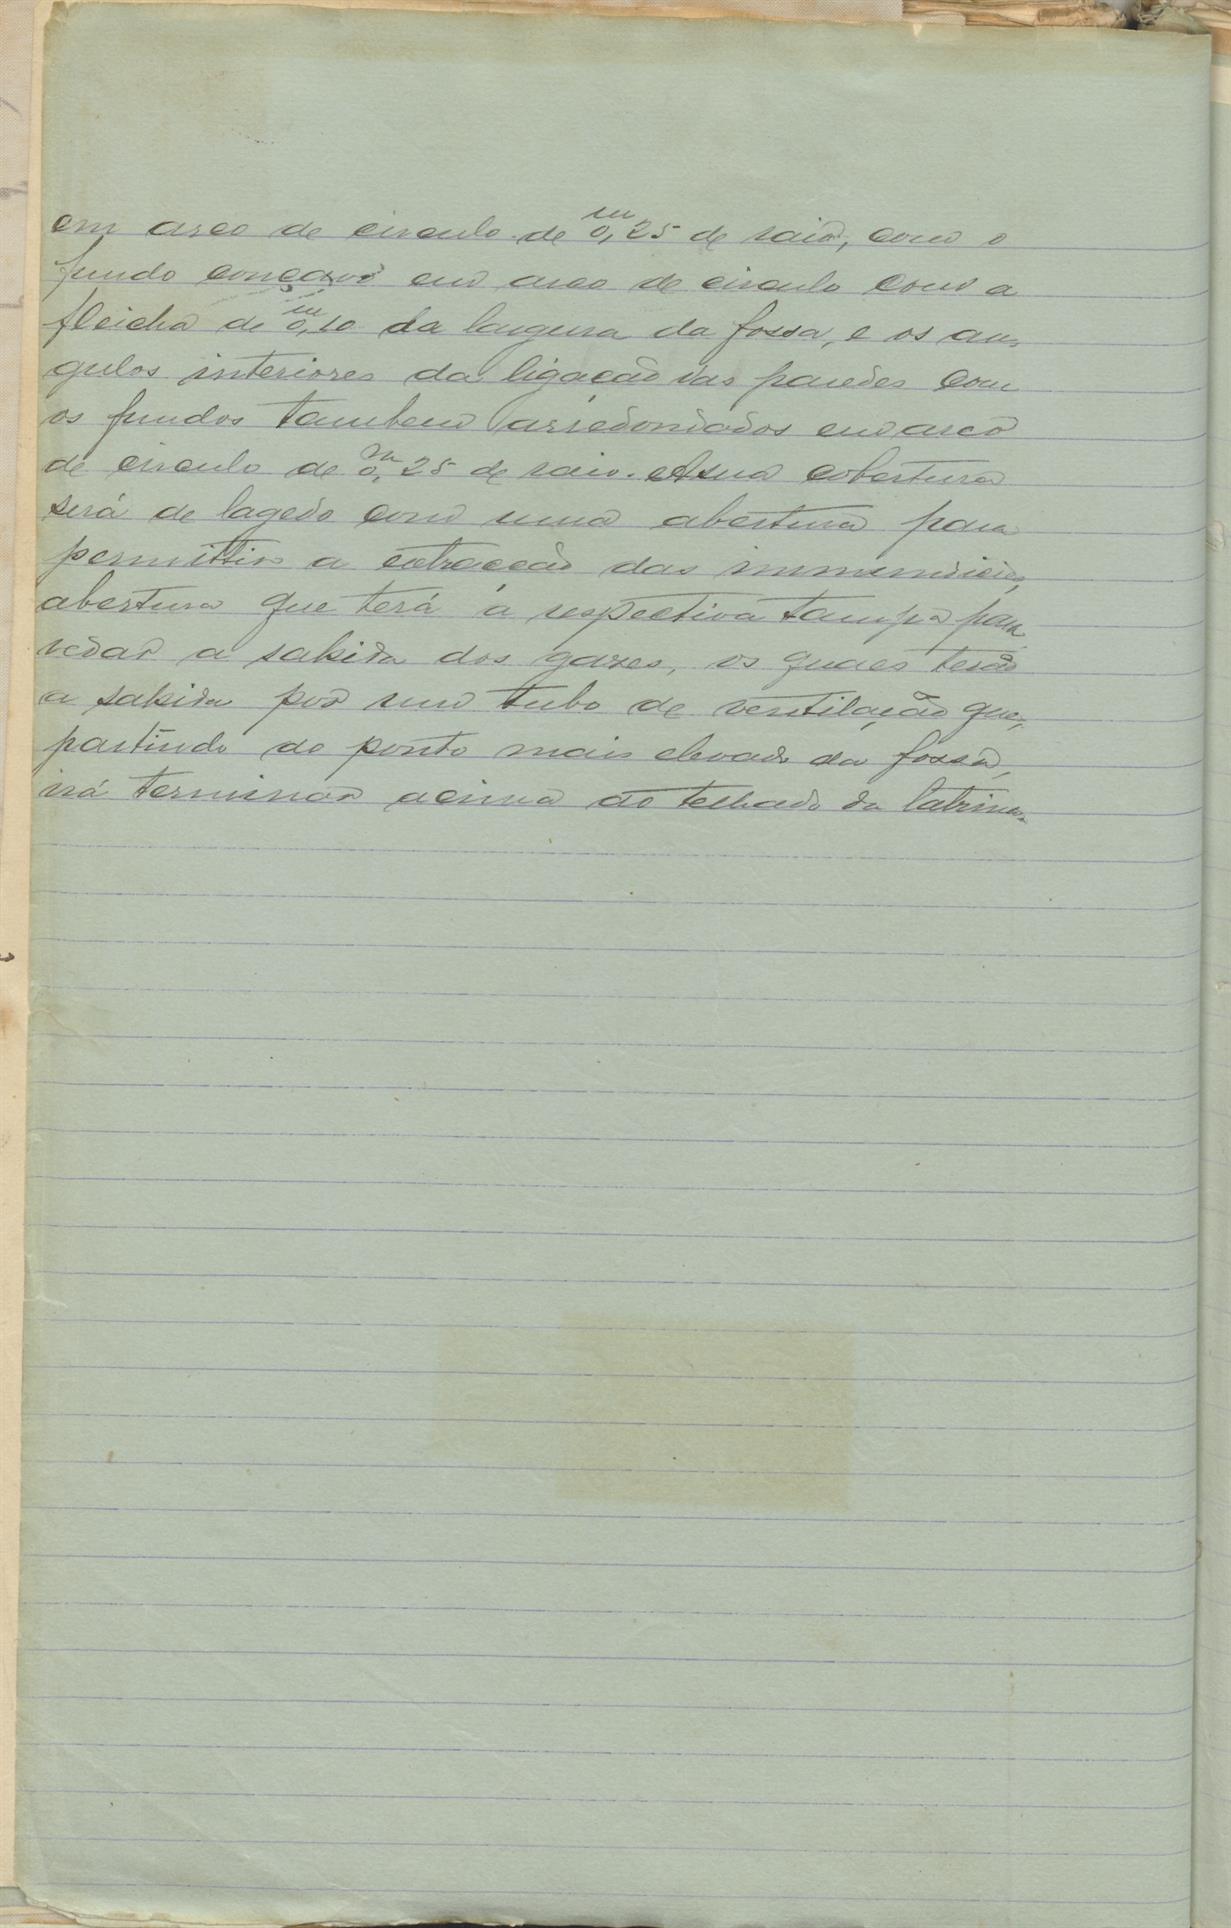 em arco de circulo de 0,ᵐ25 de raio, com o
fundo concavo em arco de circulo com a
fleicha de 0,ᵐ10 da largura da fossa, e os an-
gulos interiores da ligação das paredes com
os fundos tambem arredondados em arco
de circulo de 0,ᵐ25 de raio. A sua cobertura
será de lagedo com uma abertura para
permittir a extracção das immundicies,
abertura que terá a respectiva tampa para
vedar a sahida dos gazes, os quaes terão
a sahida por um tubo de ventilação que,
partindo do ponto mais elevado da fossa,
irá terminar acima do telhado da latrina.